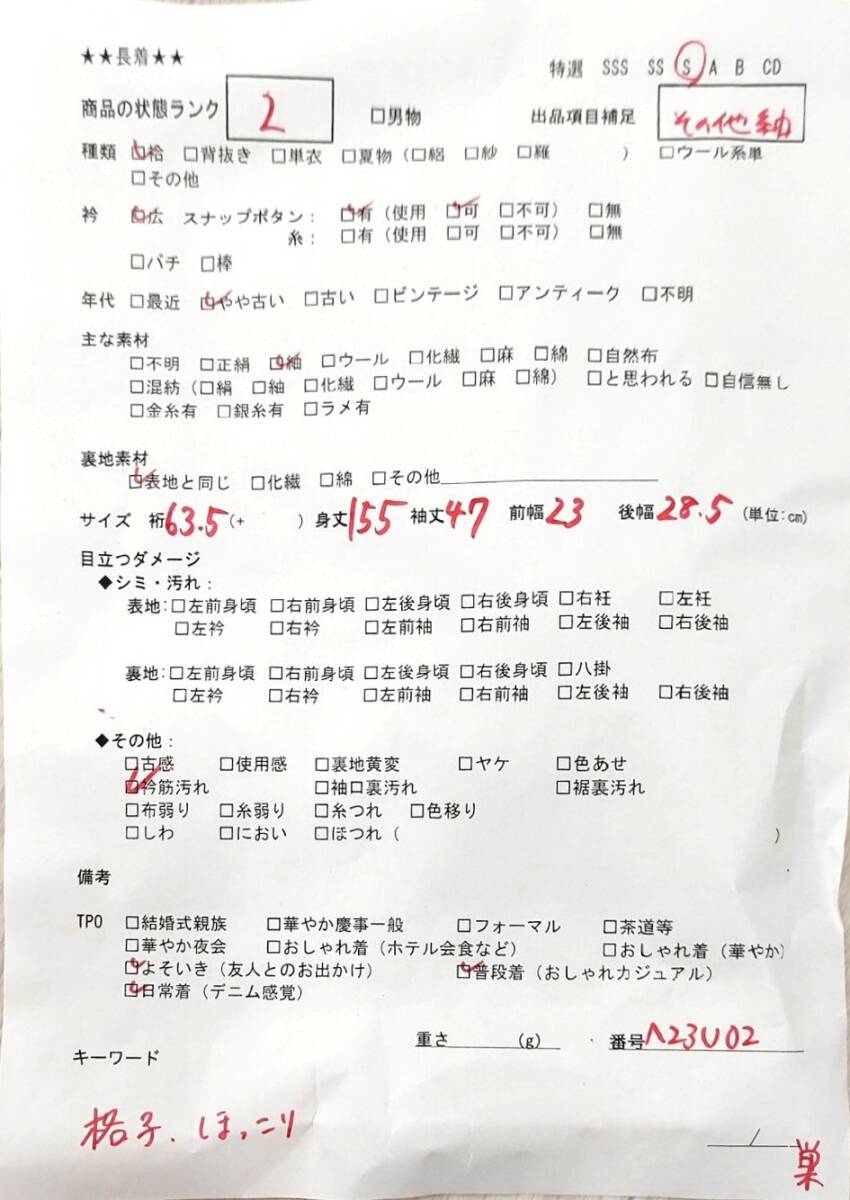 ★★長着★★
特選 SSS SS S A B CD
商品の状態ランク 2 □男物 出品項目補足 その他紬
種類 □袷 □背抜き □単衣 □夏物(□絽 □紗 □羅 ) □ウール系単
□その他
衿 □広 スナップボタン: □有(使用 □可 □不可) □無
糸: □有(使用 □可 □不可) □無
□バチ □棒
年代 □最近 □やや古い □古い □ビンテージ □アンティーク □不明
主な素材
□不明 □正絹 □紬 □ウール □化繊 □麻 □綿 □自然布
□混紡(□絹 □紬 □化繊 □ウール □麻 □綿) □と思われる □自信無し
□金糸有 □銀糸有 □ラメ有
裏地素材
□表地と同じ □化繊 □綿 □その他
サイズ 裄63.5(+ ) 身丈155 袖丈47 前幅23 後幅28.5 (単位:cm)
目立つダメージ
◆シミ・汚れ:
表地:□左前身頃 □右前身頃 □左後身頃 □右後身頃 □右衽 □左衽
□左衿 □右衿 □左前袖 □右前袖 □左後袖 □右後袖
裏地:□左前身頃 □右前身頃 □左後身頃 □右後身頃 □八掛
□左衿 □右衿 □左前袖 □右前袖 □左後袖 □右後袖
◆その他:
□古感 □使用感 □裏地黄変 □ヤケ □色あせ
□衿筋汚れ □袖口裏汚れ □裾裏汚れ
□布弱り □糸弱り □糸つれ □色移り
□しわ □におい □ほつれ( )
備考
TPO □結婚式親族 □華やか慶事一般 □フォーマル □茶道等
□華やか夜会 □おしゃれ着(ホテル会食など) □おしゃれ着(華やか)
□よそいき(友人とのお出かけ) □普段着(おしゃれカジュアル)
□日常着(デニム感覚)
重さ (g) 番号 A23U02
キーワード
格子、ほっこり
/ 巣